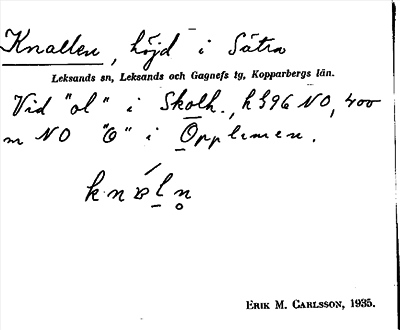 Knallen, höjd i Sätra
Leksands sn, Leksands och Gagnefs tg, Kopparbergs län.
Vid "ol" i Skolh., h 396 NO, 400
m NO "O" i Opplimen.
knaln
ERIK M. CARLSSON, 1935.